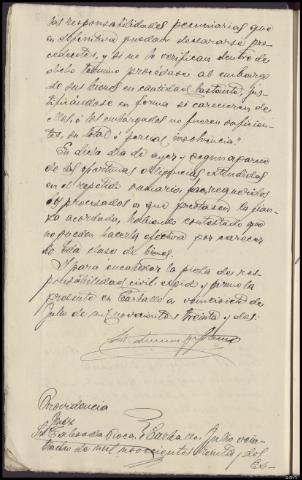 las responsabilidades pecuniarias que
en definitiva puedan declararse pro-
cedentes, y si no lo verifican dentro de
dicho término procédase al embargo
de sus bienes en cantidad bastante, jus-
tificándose en forma si carecieren de
ellos ó los embargados no fueren suficien-
tes, su total ó parcial insolvencia."
En dicho día de ayer, según aparece
de las oportunas diligencias extendidas
en el repetido sumario, fueron requeridos
los procesados a que prestasen la fian-
za acordada, habiendo contestado que
no pueden hacerla efectiva por carecer
de toda clase de bienes.
Y para encabezar la pieza de res-
ponsabilidad civil, expido y firmo la
presente en Carballo a veinticinco de
Julio de mil novecientos treinta y dos.
Providencia
Juez
Sr Taboada Roca. Carballo, Julio vein-
ticinco de mil novecientos treinta y dos